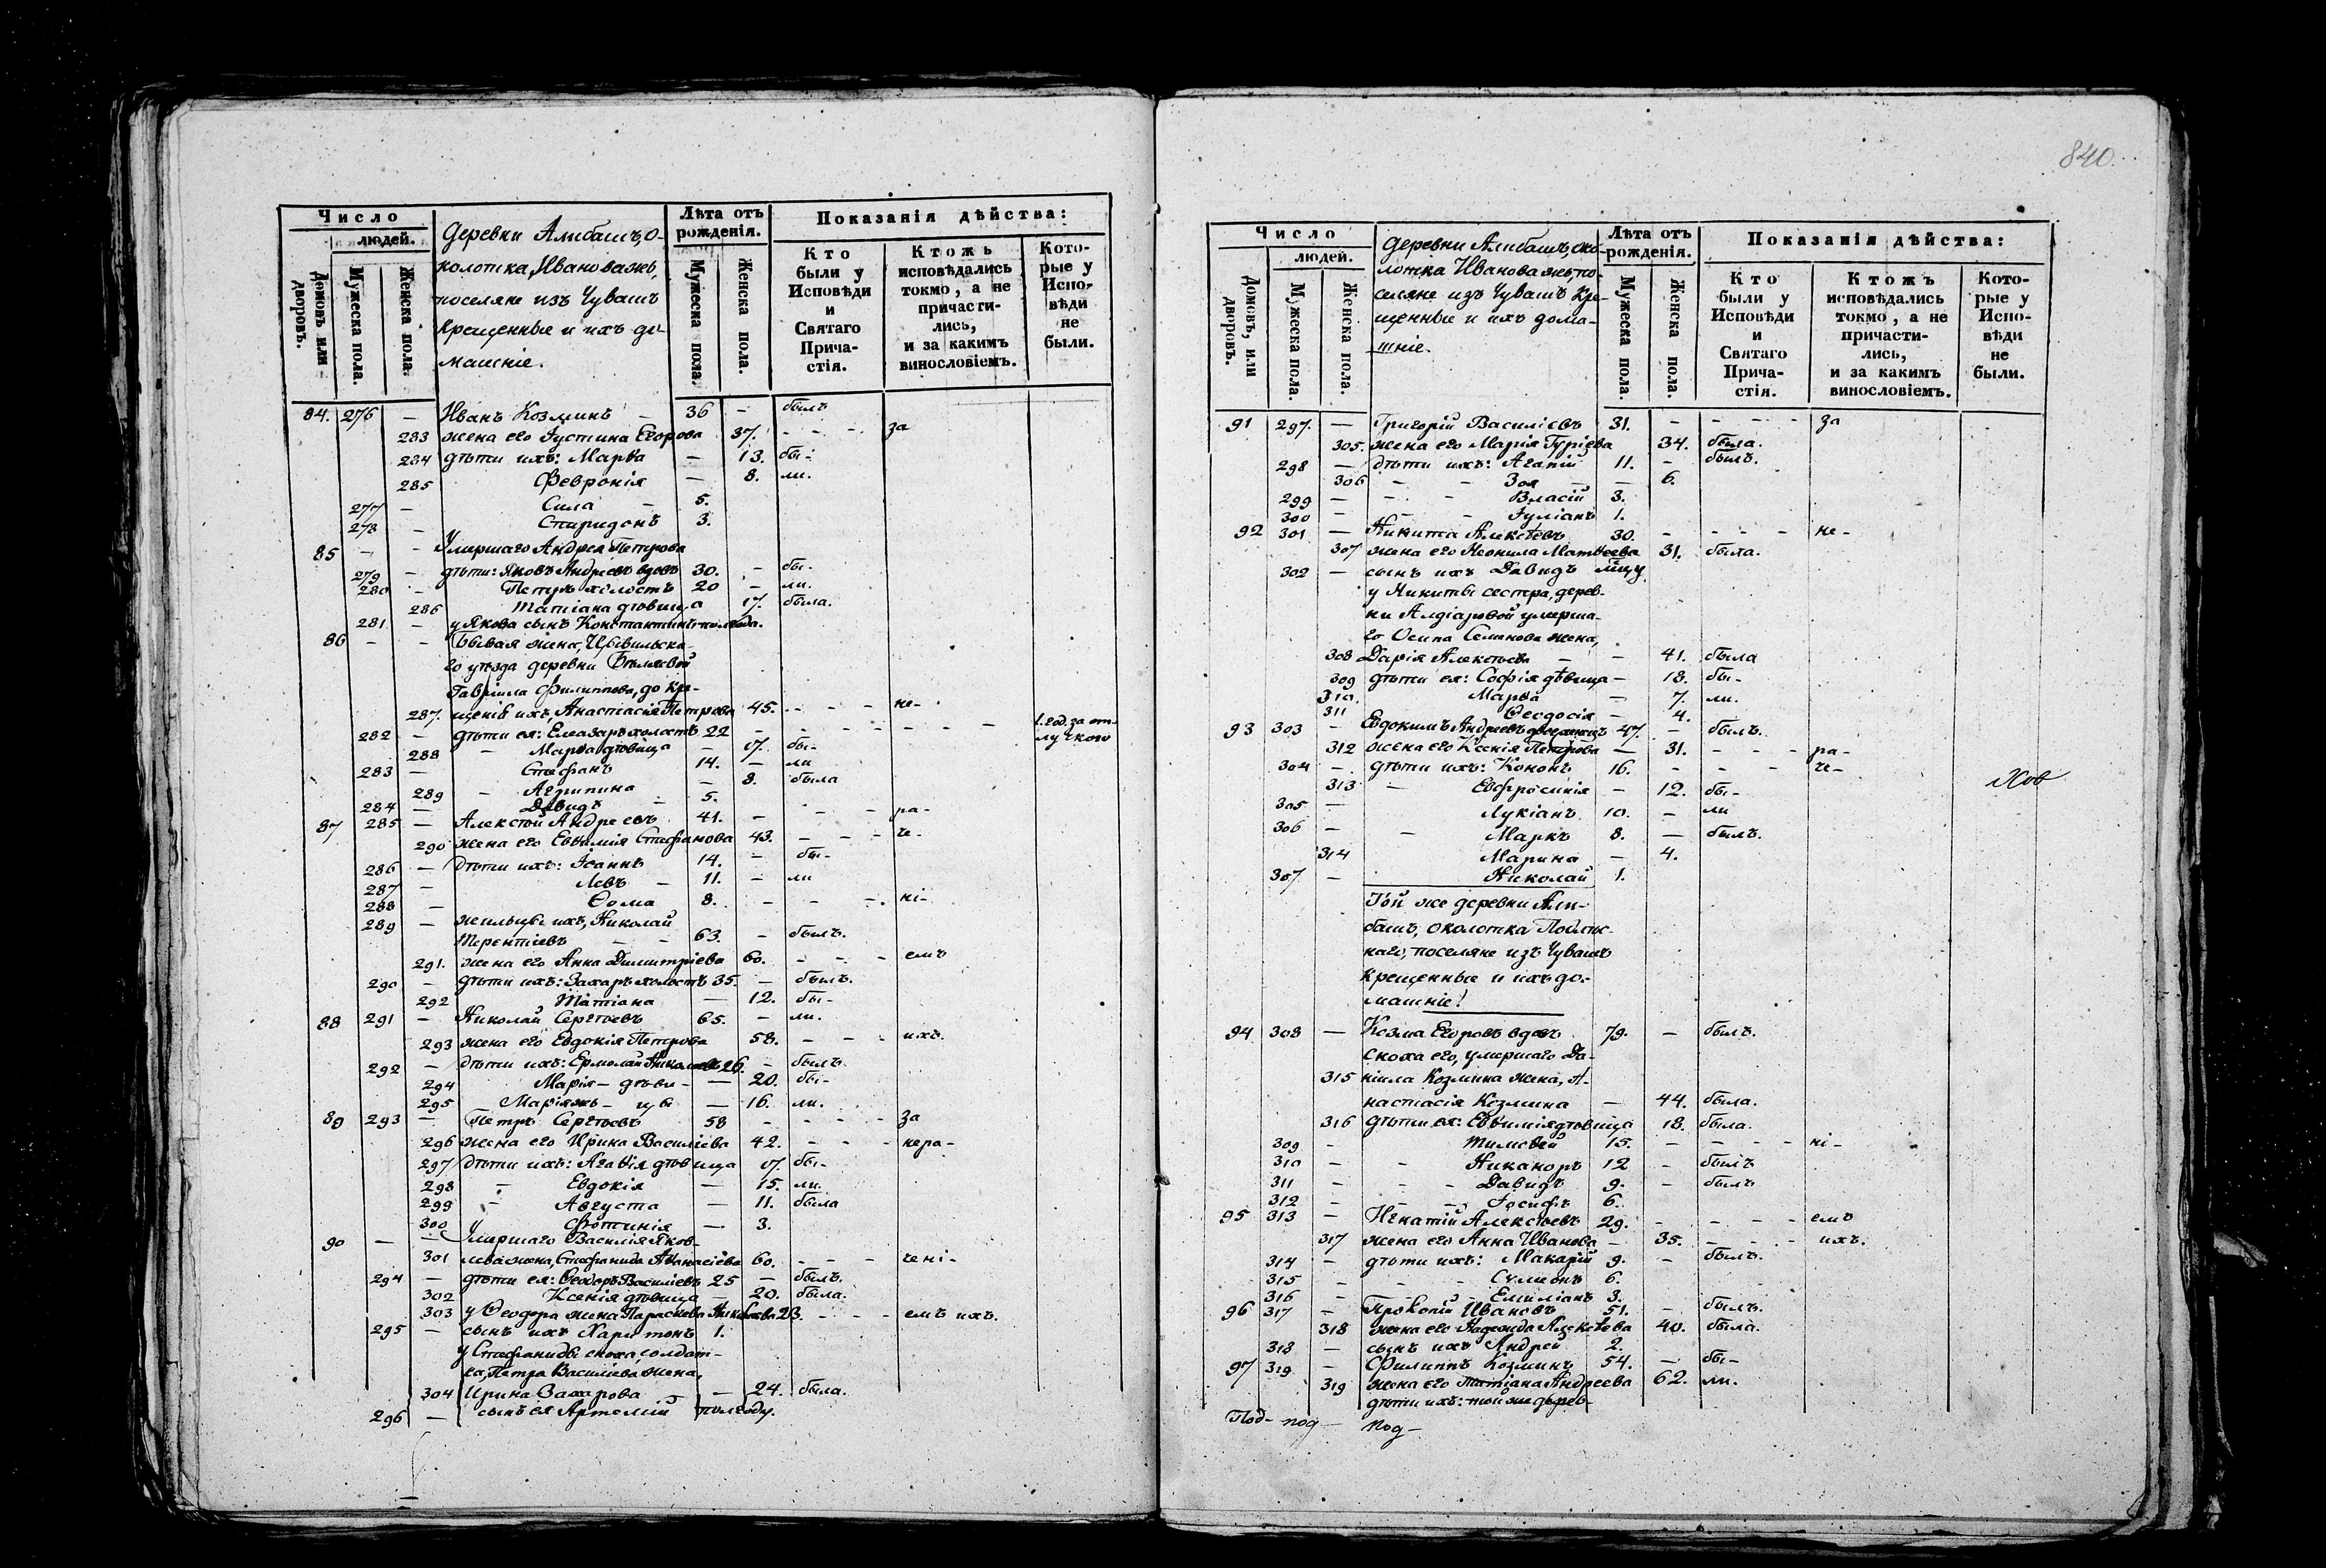 840.
Число
людей.
Домовъ или дворовъ.
Мужеска пола.
Женска пола.
Деревни Алибашъ, о-
колотка, Ивановажъ,
поселяне изъ Чувашъ
крещенные и ихъ до-
машніе.
Лѣта отъ рожденія.
Мужеска пола.
Женска пола.
Показанія дѣйства:
Кто были у Исповѣди и Святаго Прича-стія.
Ктожъ исповѣдались токмо, а не причасти-лись, и за какимъ винословіемъ.
Кото-рые у Испо-вѣди не были.
84. 276 — Иванъ Козминъ — 36 — былъ
283 жена его Іустина Егорова 37. - - - за
284 дѣти ихъ: Марѳа — 13. бы-
285 Февронія — 8. ли.
277 — Сила — 5.
278 — Спиридонъ 3.
85 — - Умершаго Андрея Петрова
279 — дѣти: Яковъ Андреевъ вдовъ 30. — бы-
280 - Петръ холостъ 20 — ли.
286 Татіана дѣвица 17. была.
281 — у Якова сынъ Константинъ полгода.
86 — - Бывая жена, Цывильска-
го уѣзда деревни Бѣляевой
Гавріила Филиппова, до кре-
287. щенія ихъ, Анастасія Петрова 45. - - - не-
282 — дѣти ея: Елеазаръ холостъ 22 - - - - - 1. год. за от-лучкою
288 - Марѳа дѣвица — 17. бы-
283 — Стефанъ 14. — ли
289 - Агрипина — 8. была
284 — Давидъ — 5.
87 285 — Алексѣй Андреевъ 41. — - - ра-
290 жена его Евѳимія Стефанова 43. - - - че-
286 — дѣти ихъ: Іоаннъ 14. — бы-
287 — Левъ — 11. — ли
288 — Ѳома 8. - - - ні-
289 — жильцы ихъ, Николай
Терентіевъ — — 63. — былъ.
291. жена его Анна Димитріева 60. - - - емъ
290 — дѣти ихъ: Захаръ холостъ 35. — былъ.
292 Татіана — 12. бы-
88 291 — Николай Сергѣевъ 65. — ли.
293 жена его Евдокія Петрова 58. - - - ихъ.
292 — дѣти ихъ: Ермолай Николаевъ 26. — былъ.
294 Марія — дѣви- — 20. бы-
295 Маріяжъ — цы — 16. ли.
89 293 — Петръ Сергѣевъ 58 - - - - за
296 жена его Ирина Василіева 42. - - - нера-
297 дѣти ихъ: Агаѳія дѣвица 17. бы-
298 - Евдокія — 15. ли.
299 - Августа — 11. была
300 Фотинія — 3.
90 — — Умершаго Василія Яков-
301 лева жена, Стефанида Аѳанасіева 60. - - - чені-
294 — дѣти ея: Ѳеодоръ Василіевъ 25 — былъ.
302 Ксенія дѣвица — 20. была.
303 у Ѳеодора жена Параскева 23. - - - емъ ихъ.
295 — сынъ ихъ Харитонъ 1.
у Стефаниды сноха, солдат-
ка, Петра Василіева жена,
304 Ирина Захарова — 24. была.
296 — сынъ ея Артемій полгоду.
Число
людей.
Домовъ, или дворовъ.
Мужеска пола.
Женска пола.
Деревни Алибашъ, око-
лотка Ивановажъ, по-
селяне изъ Чувашъ кре-
щенные и ихъ дома-
шніе.
Лѣта отъ рожденія.
Мужеска пола.
Женска пола.
Показанія дѣйства:
Кто были у Исповѣди и Святаго Прича-стія.
Ктожъ исповѣдались токмо, а не причасти-лись, и за какимъ винословіемъ.
Кото-рые у Испо-вѣди не были.
91 297. — Григорій Василіевъ 31. - - - - за
305. жена его Марія Гуріева 34. была.
298 — дѣти ихъ: Агапій 11. — былъ.
306 - - Зоя — — 6.
299 — - - Власій 3.
300 — - Іуліанъ 1.
92 301 — Никита Алексѣевъ 30. - - - - не-
307 жена его Неонила Матѳеева 31. была.
302 — сынъ ихъ Давидъ мцу
у Никиты сестра, дерев-
ни Алдіаровой умерша-
го Осипа Семенова жена,
308 Дарія Алексѣева — — 41. была
309 дѣти ея: Софія дѣвица — 18. бы-
310. Марѳа — 7. ли.
311 Ѳеодосія — 4.
93 303 — Евдокимъ Андреевъ 47. — былъ.
312 жена его Ксенія Петрова — 31. - - - ра-
304 — дѣти ихъ: Кононъ 16. - - - че-
313 - Евфросинія — 12. бы-
305 — Лукіанъ 10. — ли
306 — - Маркъ 8. — былъ.
314 Марина — 4.
307 — Николай 1.
Той же деревни Али-
башъ, околотка Подлѣс-
наго, поселяне изъ Чувашъ
крещенные и ихъ до-
машніе!
94 308 — Козма Егоровъ вдовъ 79. — былъ.
Сноха его, умершаго Да-
315 ніила Козмина жена, А-
настасія Козмина — 44. была.
316 дѣти ея: Евѳимія дѣвица 18. была.
309 - Тимоѳей 15. - - - - ні-
310 - - Никаноръ 12 — былъ
311 - - - Давидъ 9. — былъ
312 - - - Іосифъ 6.
95 313 — Игнатій Алексѣевъ 29. - - - - емъ
317 жена его Анна Иванова — 35. - - - ихъ.
314 — дѣти ихъ: Макарій 9. — былъ.
315 - - - Сѵмеонъ 6.
316 - - - Емиліанъ 3.
96 317 — Прокопій Ивановъ 51. — былъ.
318 жена его Надежда Алексѣева 40. была.
318 — сынъ ихъ Андрей 2.
97 319 — Филиппъ Козминъ 54. — бы-
319 жена его Татіана Андреева 62. ли.
дѣти ихъ: той же дерев-
Под- под- под-